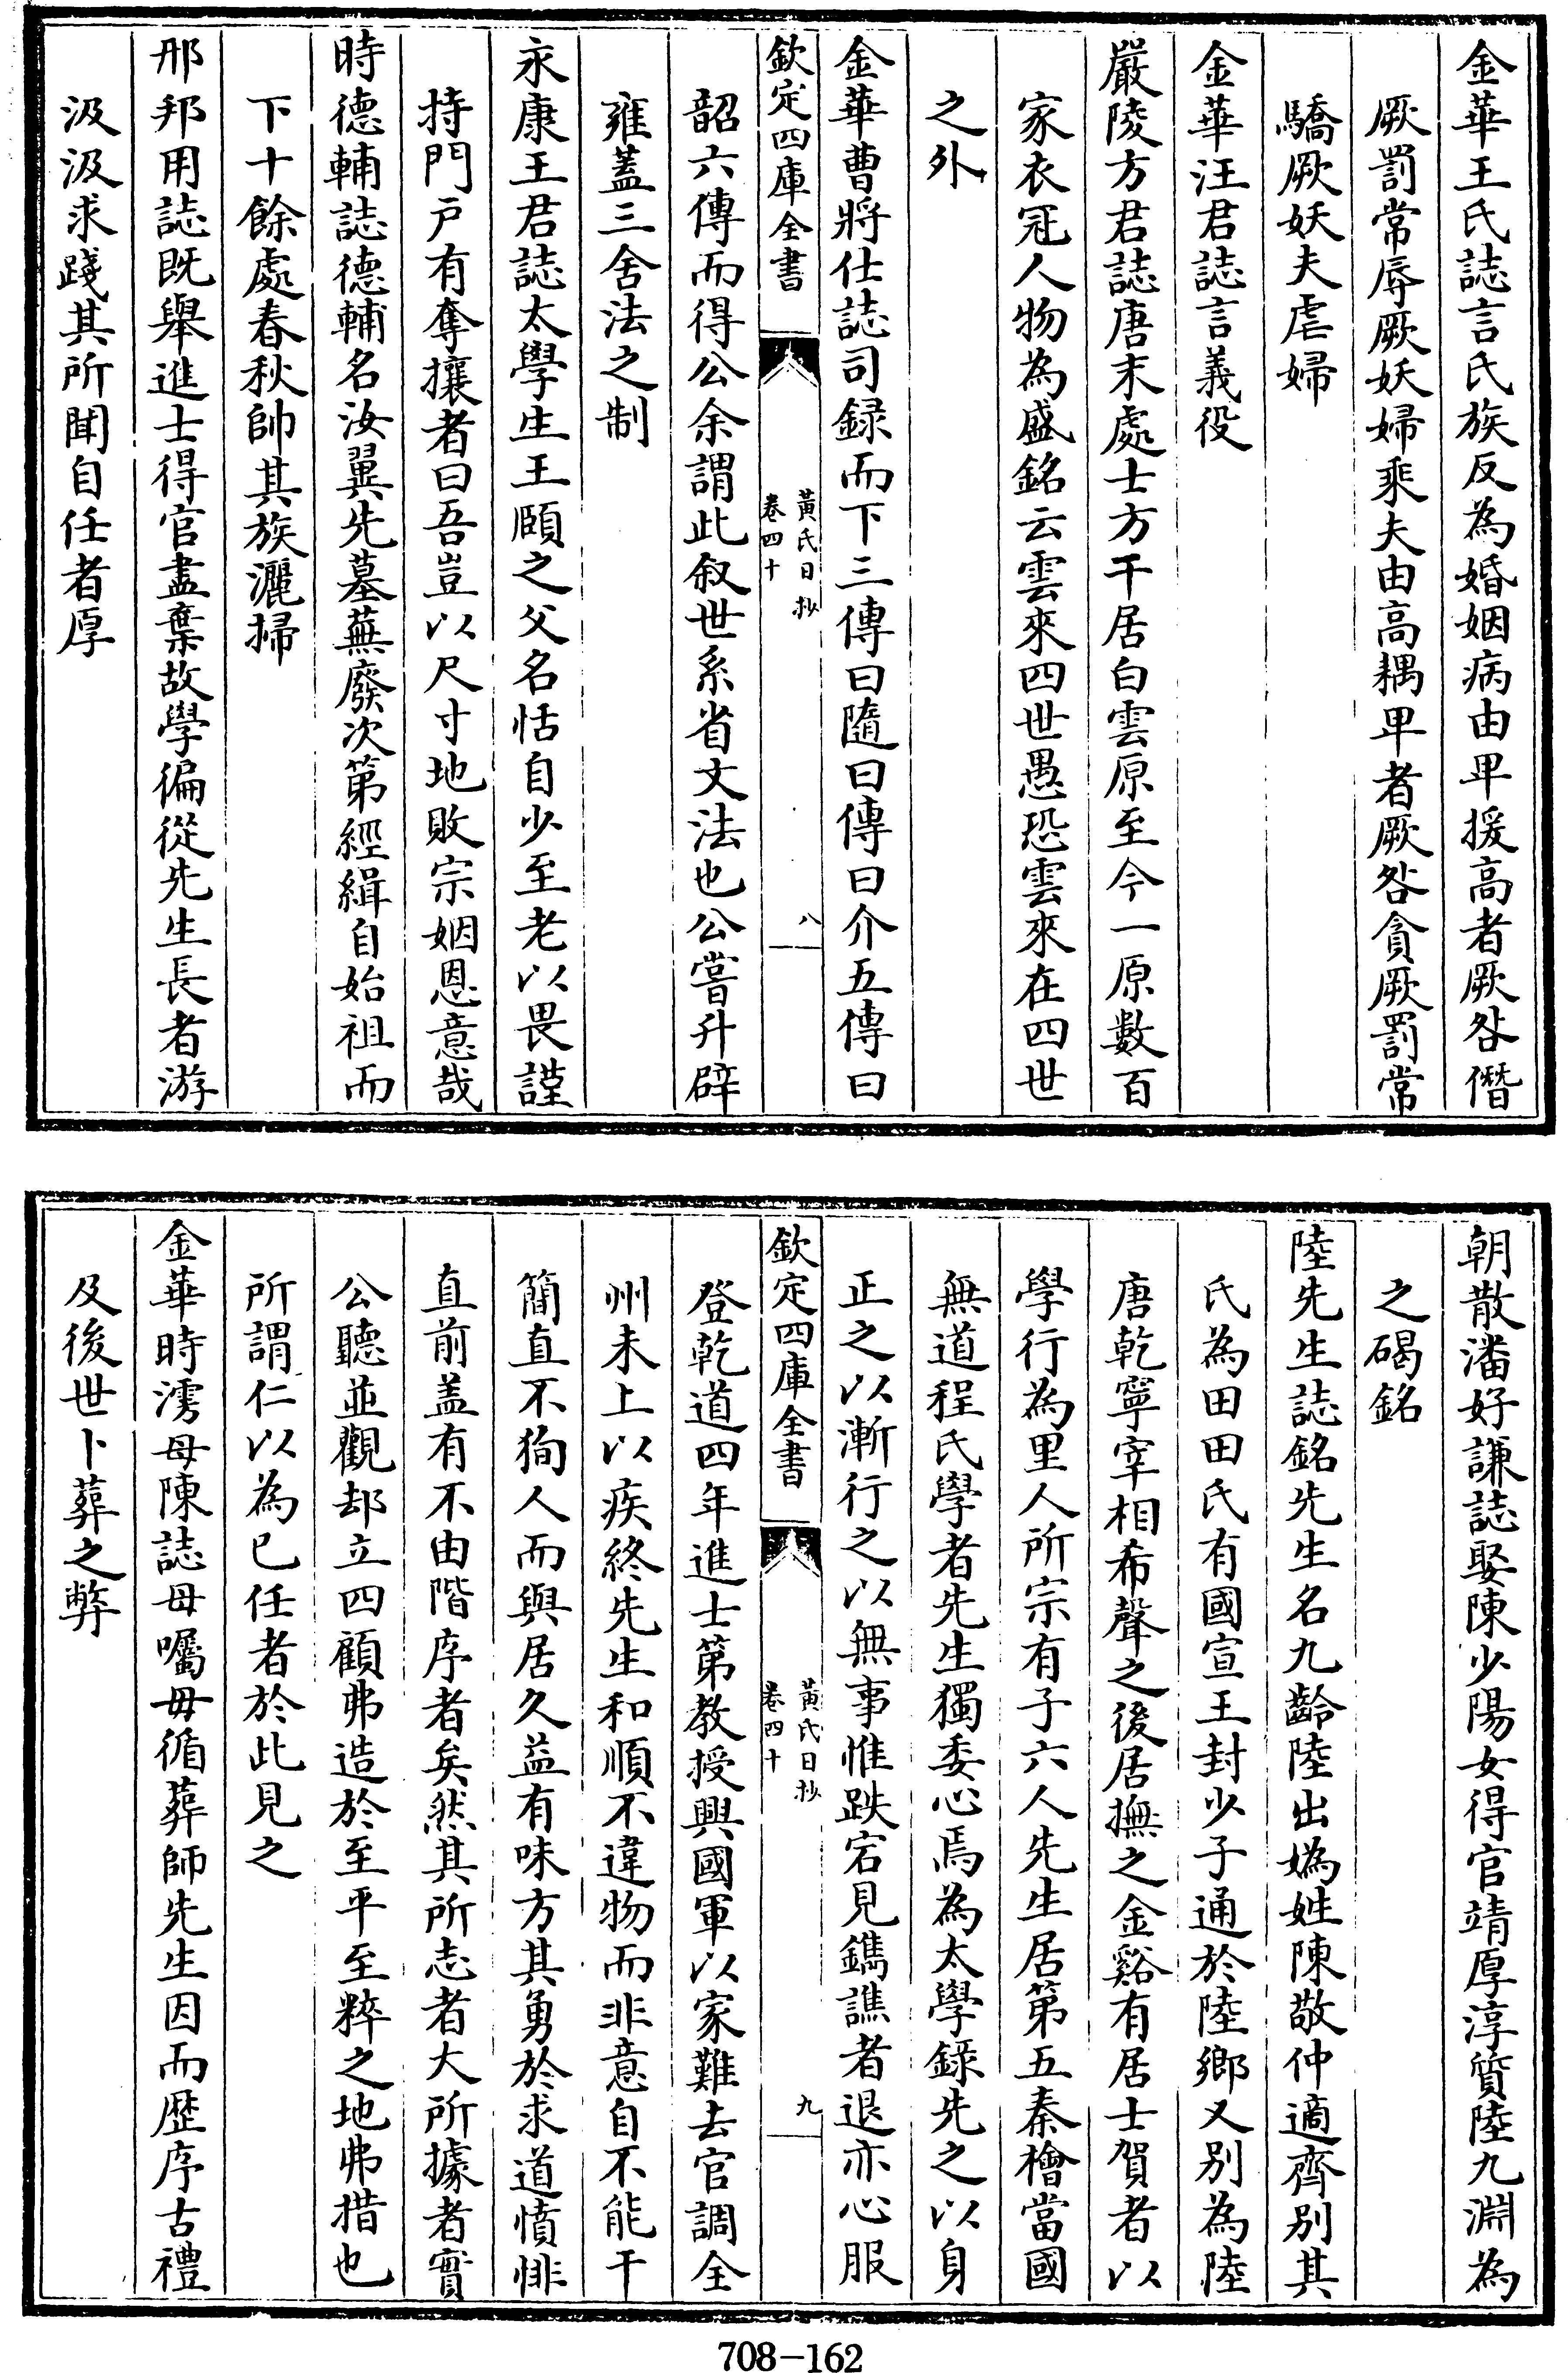 金華王氏誌言氏族反為婚姻病由卑援高者厥咎僭
厥罰常辱厥妖婦乘夫由高耦卑者厥咎貪厥罰常
驕厥妖夫虐婦
金華汪君誌言義役
嚴陵方君誌唐末處士方干居白雲原至今一原數百
家衣冠人物為盛銘云雲來四世愚恐雲來在四世
之外
金華曹將仕誌司録而下三傳曰隨曰傳曰介五傳曰
欽定四庫全書
黃氏日抄
卷四十
八
韶六傳而得公余謂此叙世系省文法也公嘗升辟
雍蓋三舍法之制
永康王君誌太學生王頤之父名恬自少至老以畏謹
持門戶有奪攘者曰吾豈以尺寸地敗宗姻恩意哉
時德輔誌德輔名汝翼先墓蕪廢次第經緝自始祖而
下十餘處春秋帥其族灑掃
邢邦用誌既舉進士得官盡棄故學徧從先生長者游
汲汲求踐其所聞自任者厚
朝散潘好謙誌娶陳少陽女得官靖厚淳質陸九淵為
之碣銘
陸先生誌銘先生名九齡陸出媯姓陳敬仲適齊别其
氏為田田氏有國宣王封少子通於陸鄉又别為陸
唐乾寧宰相希聲之後居撫之金谿有居士賀者以
學行為里人所宗有子六人先生居第五秦檜當國
無道程氏學者先生獨委心焉為太學錄先之以身
正之以漸行之以無事惟跌宕見鐫譙者退亦心服
欽定四庫全書
黃氏日抄
卷四十
九
登乾道四年進士第教授興國軍以家難去官調全
州未上以疾終先生和順不違物而非意自不能干
簡直不狥人而與居久益有味方其勇於求道憤悱
直前盖有不由階序者矣然其所志者大所據者實
公聽並觀却立四顧弗造於至平至粹之地弗措也
所謂仁以為已任者於此見之
金華時澐母陳誌母囑毋循葬師先生因而歷序古禮
及後世卜葬之弊
708-162